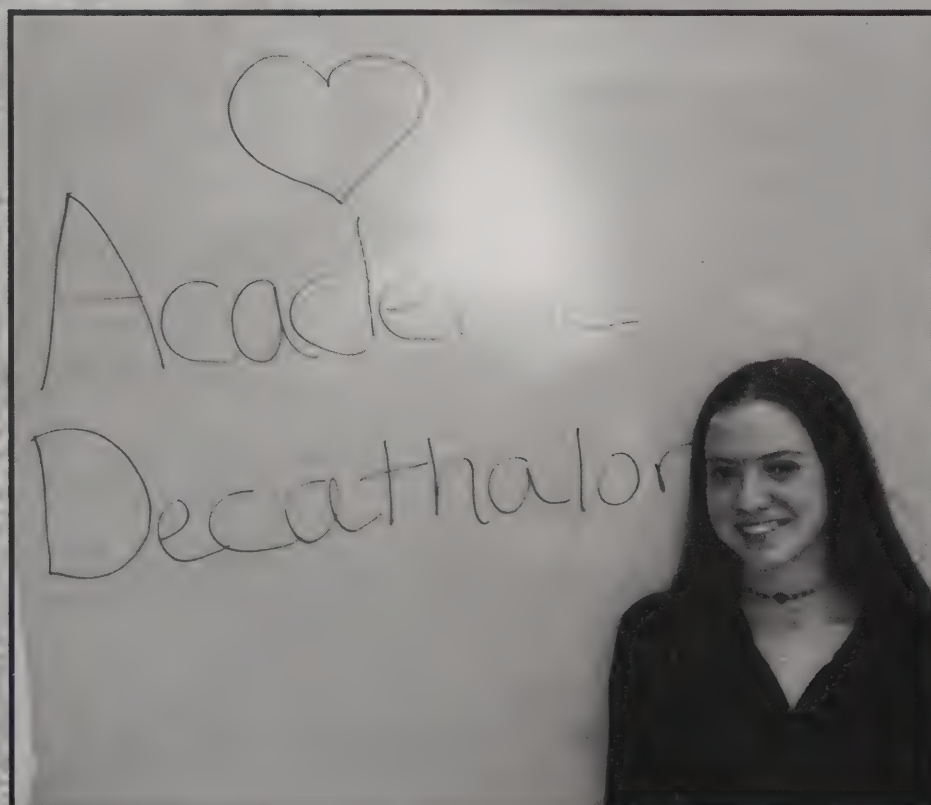 Acade
Decathalon